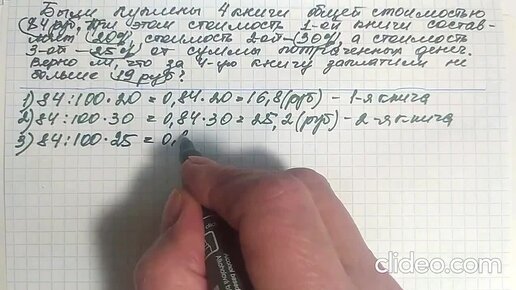 Были куплены 4 книги общей стоимостью
84 руб, при этом стоимость 1-ой книги состав-
ляет 20%, стоимость 2-ой - 30%, а стоимость
3-ой - 25% от суммы потраченных денег.
Верно ли, что за 4-ую книгу заплатили не
больше 19 руб?
1) 84:100·20 = 0,84·20 = 16,8 (руб) - 1-я книга
2) 84:100·30 = 0,84·30 = 25,2 (руб) - 2-я книга
3) 84:100·25 = 0,
clideo.com